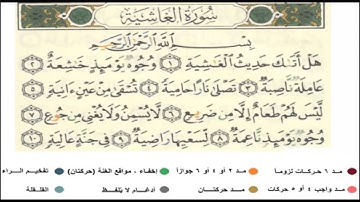 سُورَةُ الْغَاشِيَةِ
بِسْمِ اللَّهِ الرَّحْمَٰنِ الرَّحِيمِ
هَلْ أَتَىٰكَ حَدِيثُ الْغَٰشِيَةِ ١ وُجُوهٌ يَوْمَئِذٍ خَٰشِعَةٌ ٢
عَامِلَةٌ نَّاصِبَةٌ ٣ تَصْلَىٰ نَارًا حَامِيَةً ٤ تُسْقَىٰ مِنْ عَيْنٍ ءَانِيَةٍ ٥
لَّيْسَ لَهُمْ طَعَامٌ إِلَّا مِن ضَرِيعٍ ٦ لَّا يُسْمِنُ وَلَا يُغْنِي مِن جُوعٍ ٧
وُجُوهٌ يَوْمَئِذٍ نَّاعِمَةٌ ٨ لِّسَعْيِهَا رَاضِيَةٌ ٩ فِي جَنَّةٍ عَالِيَةٍ ١٠
مد ٦ حركات لزوماً مد ٢ أو ٤ أو ٦ جوازاً إخفاء ، مواقع الغنة (حركتان) تفخيم الراء
مد واجب ٤ أو ٥ حركات مد حركتان إدغام ، لا يلفظ القلقلة